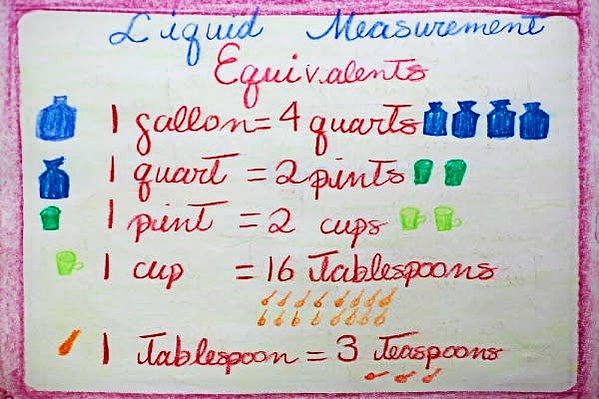 Liquid Measurement
Equivalents
1 gallon = 4 quarts
1 quart = 2 pints
1 pint = 2 cups
1 cup = 16 Tablespoons
1 Tablespoon = 3 Teaspoons